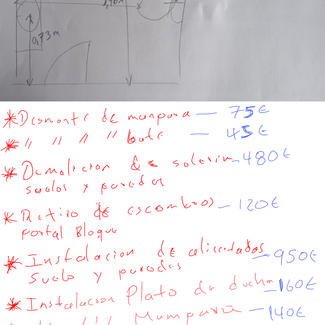 0,73m
* Desmonte de mampara — 75€
* " " " " bate — 45€
* Demolicion de soleria — 480€
suelos y paredes
* Retiro de escombros — 120€
portal Bloque
* Instalacion de alicatados — 950€
suelo y paredes
* Instalacion Plato de ducha — 160€
Mampara — 140€